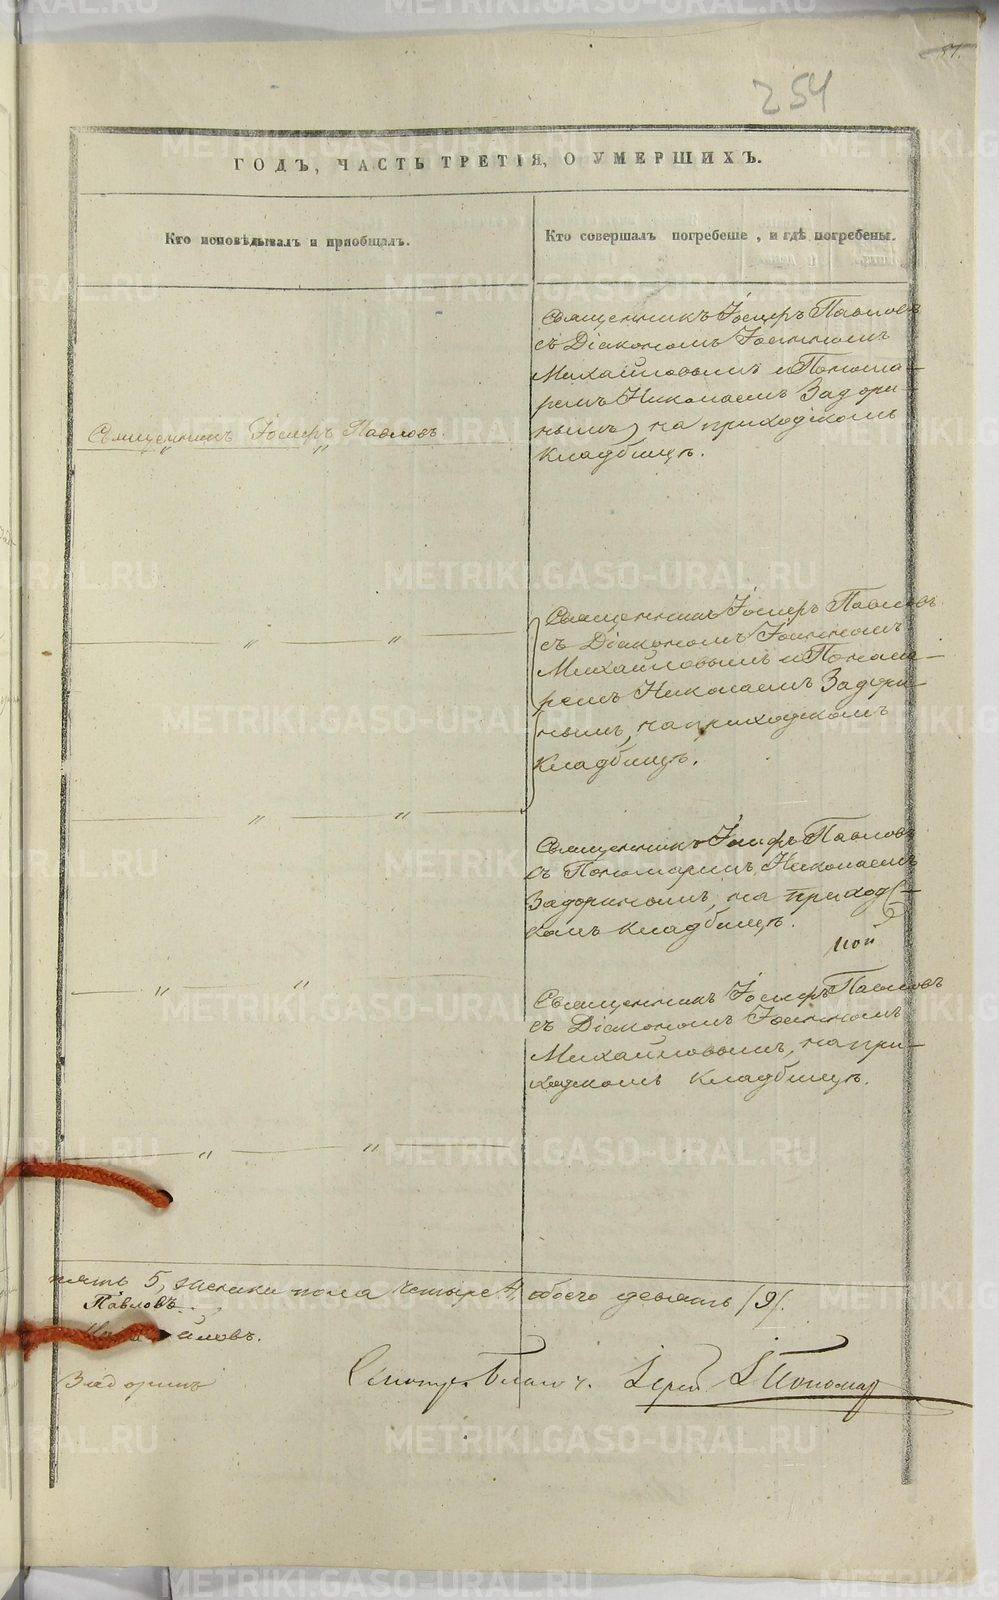 57.
254
ГОДЪ, ЧАСТЬ ТРЕТІЯ, О УМЕРШИХЪ.
Кто исповѣдывалъ и пріобщалъ.
Кто совершалъ погребеніе, и гдѣ погребены.
Священникъ Іосифъ Павловъ
съ Діакономъ Іоанномъ
Михайловымъ и Понома-
ремъ Николаемъ Задори-
нымъ, на приходскомъ
кладбищѣ.
Священникъ Іосифъ Павловъ.
Священникъ Іосифъ Павловъ
съ Діакономъ Іоанномъ
Михайловымъ и Понома-
ремъ Николаемъ Задори-
нымъ, на приходскомъ
кладбищѣ.
Священникъ Іосифъ Павловъ
съ Пономаремъ Николаемъ
Задоринымъ, на приходс-
комъ кладбищѣ.
Священникъ Іосифъ Павловъ
съ Діакономъ Іоанномъ
Михайловымъ, на при-
ходскомъ кладбищѣ.
пять 5, женска пола четыре 4, обоего девять /9/.
Павловъ.
йловъ.
Задоринъ
METRIKI.GASO-URAL.RU